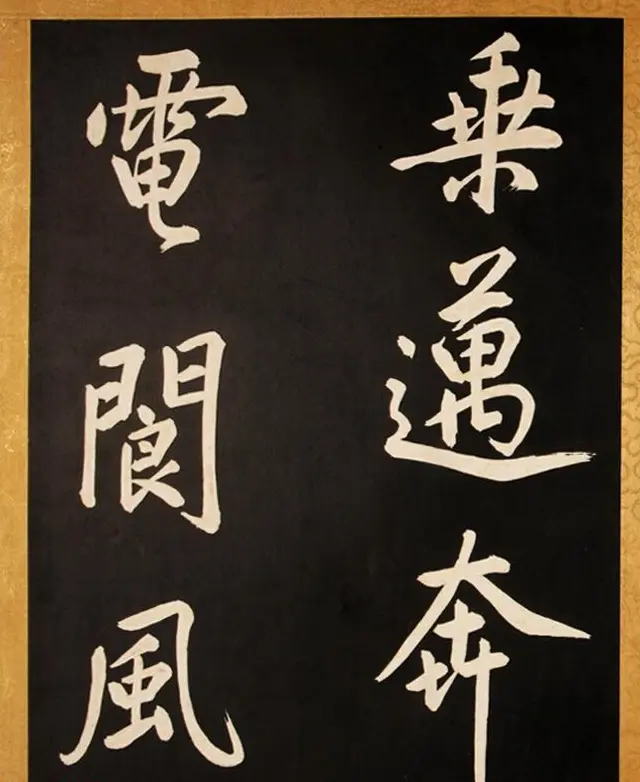 乗邁奔
電閬風